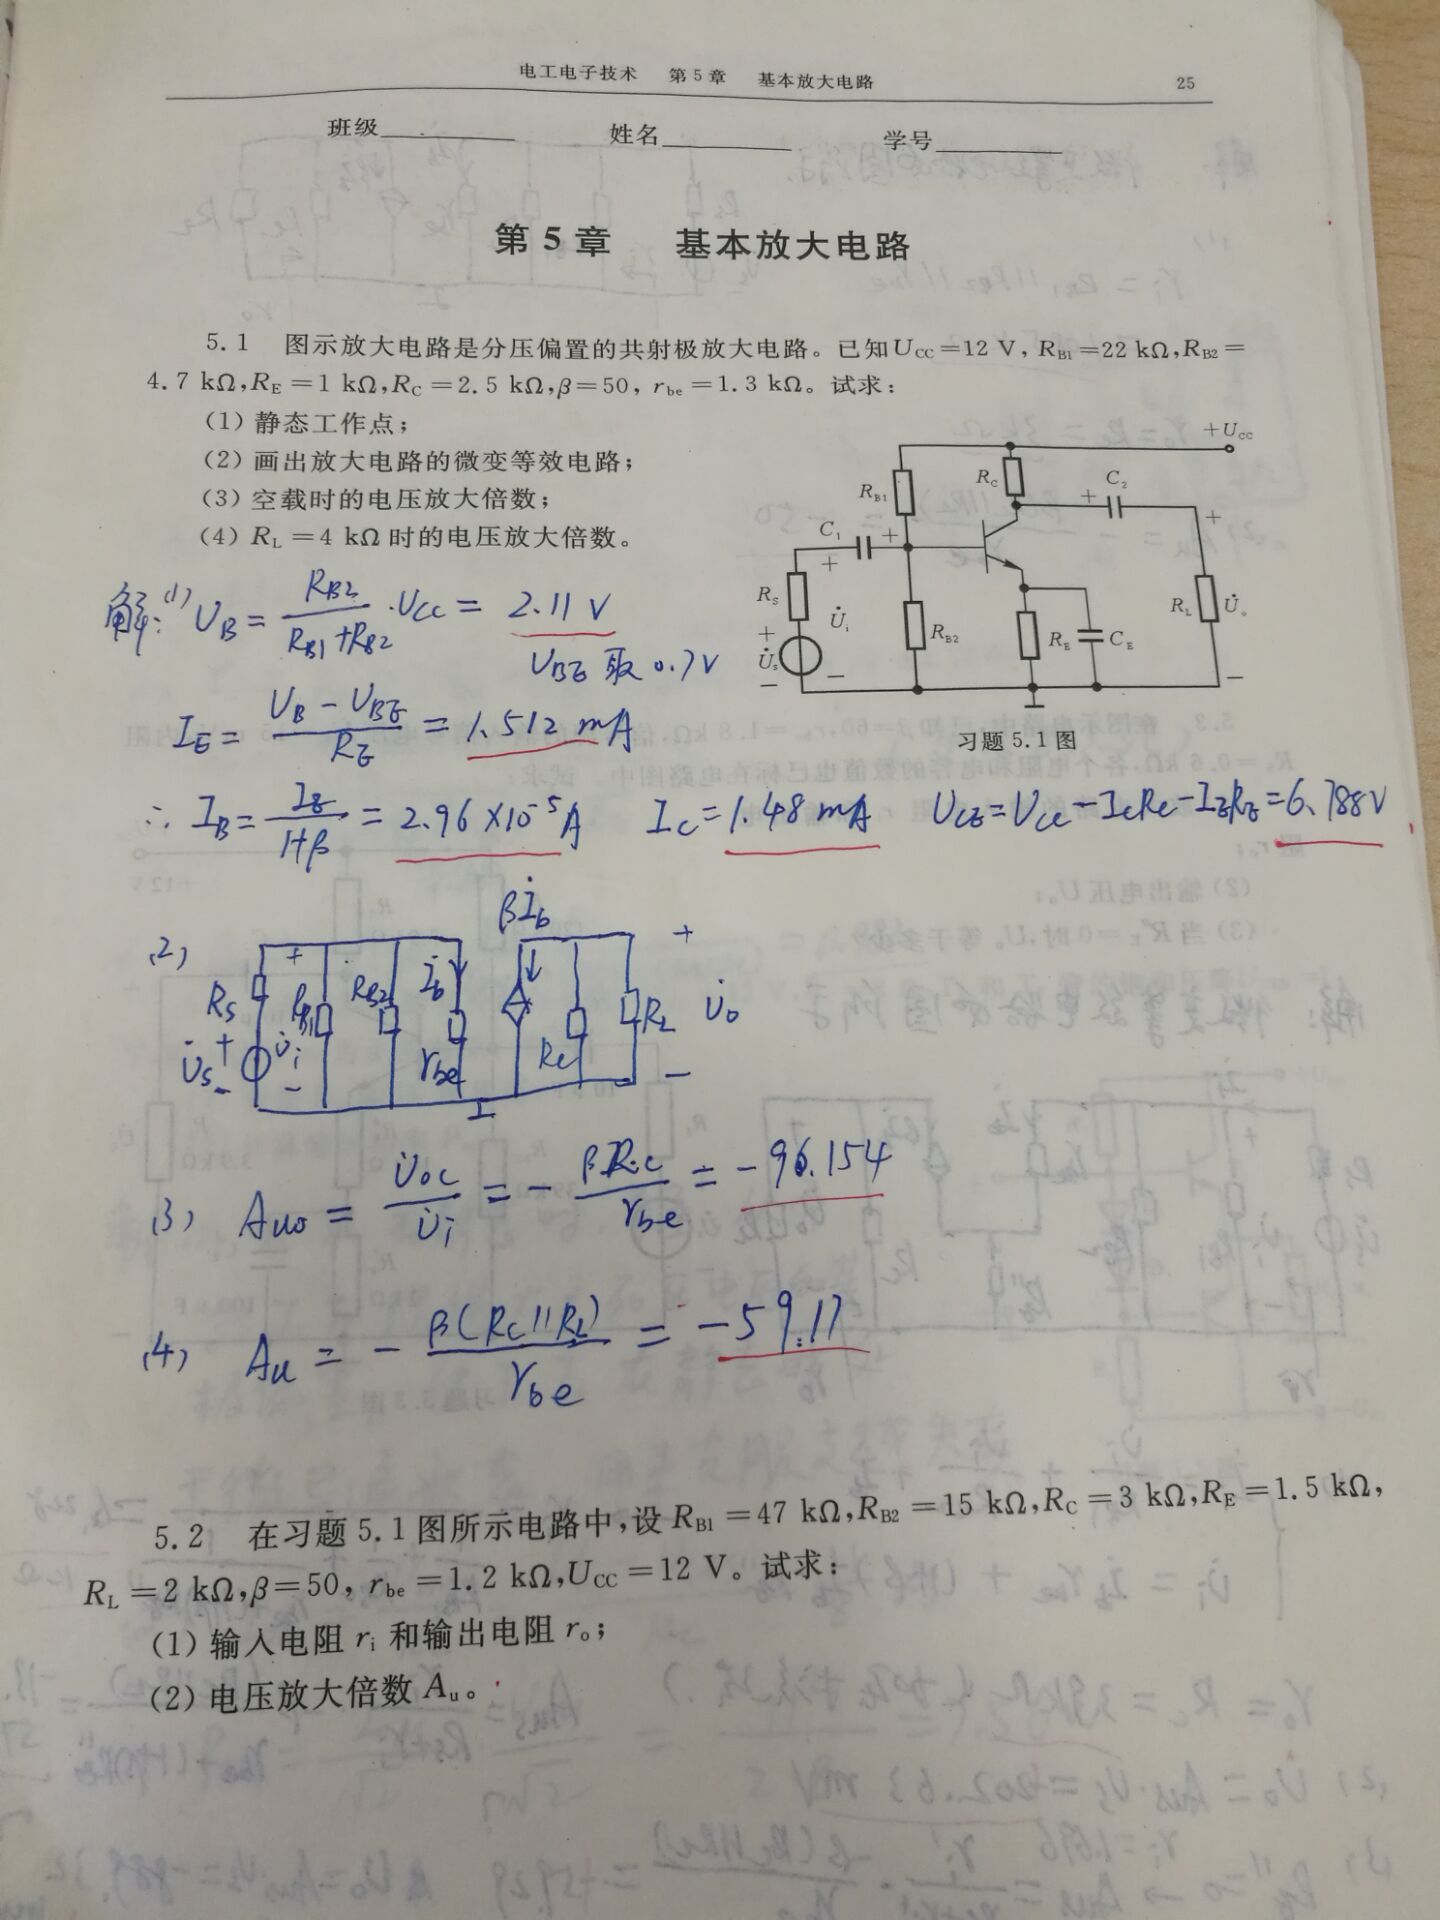 电工电子技术 第5章 基本放大电路 25
班级 姓名 学号
第5章 基本放大电路
5.1 图示放大电路是分压偏置的共射极放大电路。已知U_CC=12 V, R_B1=22 kΩ,R_B2=
4.7 kΩ,R_E=1 kΩ,R_C=2.5 kΩ,β=50, r_be=1.3 kΩ。试求:
(1) 静态工作点;
(2) 画出放大电路的微变等效电路;
(3) 空载时的电压放大倍数;
(4) R_L=4 kΩ时的电压放大倍数。
+U_CC
R_B1 R_C C_2 +
C_1 + + +
R_S U̇_i R_B2 R_E C_E R_L U̇_o
+ U̇_s − − −
习题5.1图
解:(1) U_B = R_B2/(R_B1+R_B2) · U_CC = 2.11 V
U_BE 取 0.7V
I_E = (U_B − U_BE)/R_E = 1.512 mA
∴ I_B = I_E/(1+β) = 2.96×10^-5 A I_C = 1.48 mA U_CE = U_CC − I_C R_C − I_E R_E = 6.788V
(2) βİ_b
R_S + R_B1 R_B2 İ_b r_be R_C R_L + U̇_o −
U̇_s + − U̇_i −
(3) A_uo = U̇_oc/U̇_i = − βR_C/r_be = −96.154
(4) A_u = − β(R_C//R_L)/r_be = −59.17
5.2 在习题5.1图所示电路中,设R_B1=47 kΩ,R_B2=15 kΩ,R_C=3 kΩ,R_E=1.5 kΩ,
R_L=2 kΩ,β=50, r_be=1.2 kΩ,U_CC=12 V。试求:
(1) 输入电阻 r_i 和输出电阻 r_o;
(2) 电压放大倍数 A_u。